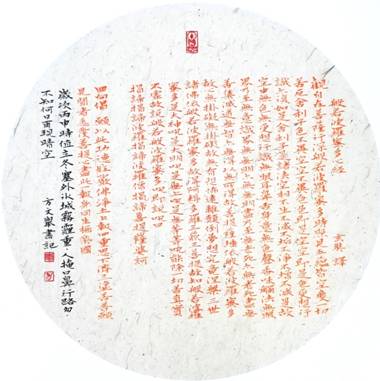 般若波羅蜜多心經
玄奘 譯
觀自在菩薩行深般若波羅蜜多時照見五蘊皆空度一切
苦厄舍利子色不異空空不異色色即是空空即是色受想行
識亦復如是舍利子是諸法空相不生不滅不垢不淨不增不減是故
空中無色無受想行識無眼耳鼻舌身意無色聲香味觸法無眼
界乃至無意識界無無明亦無無明盡乃至無老死亦無老死盡無苦
集滅道無智亦無得以無所得故菩提薩埵依般若波羅蜜多
故心無罣礙無罣礙故無有恐怖遠離顛倒夢想究竟涅槃三世
諸佛依般若波羅蜜多故得阿耨多羅三藐三菩提故知般若波羅
蜜多是大神咒是大明咒是無上咒是無等等咒能除一切苦真實
不虛故說般若波羅蜜多咒即說咒曰
揭諦揭諦波羅揭諦波羅僧揭諦菩提薩婆訶
回向偈 願以此功德莊嚴佛淨土上報四重恩下濟三途苦若有
見聞者悉發菩提心盡此一報身同生極樂國
歲次丙申時值立冬塞外冰城霧霾重人掩口鼻行路匆
不知何日再現晴空
方文 書記